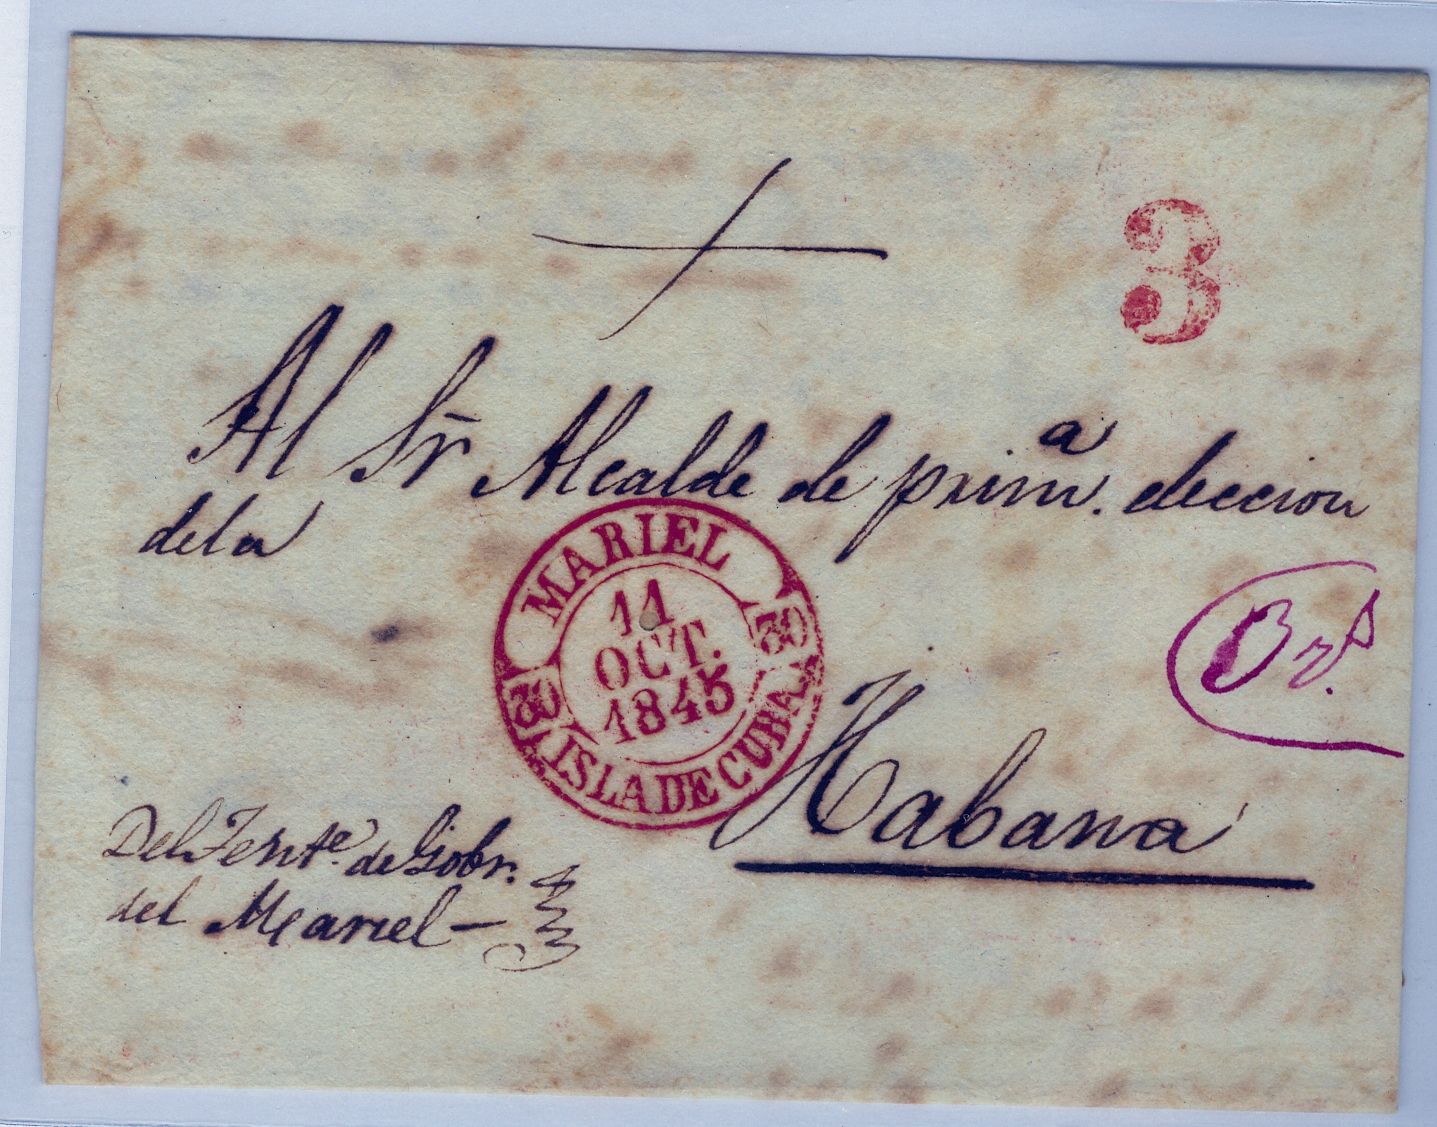 3
Al Sr Alcalde de prim.a eleccion
de la
MARIEL
11
OCT.
1845
30
30
ISLA DE CUBA
Habana
Del Tente. de Gobr.
del Mariel —